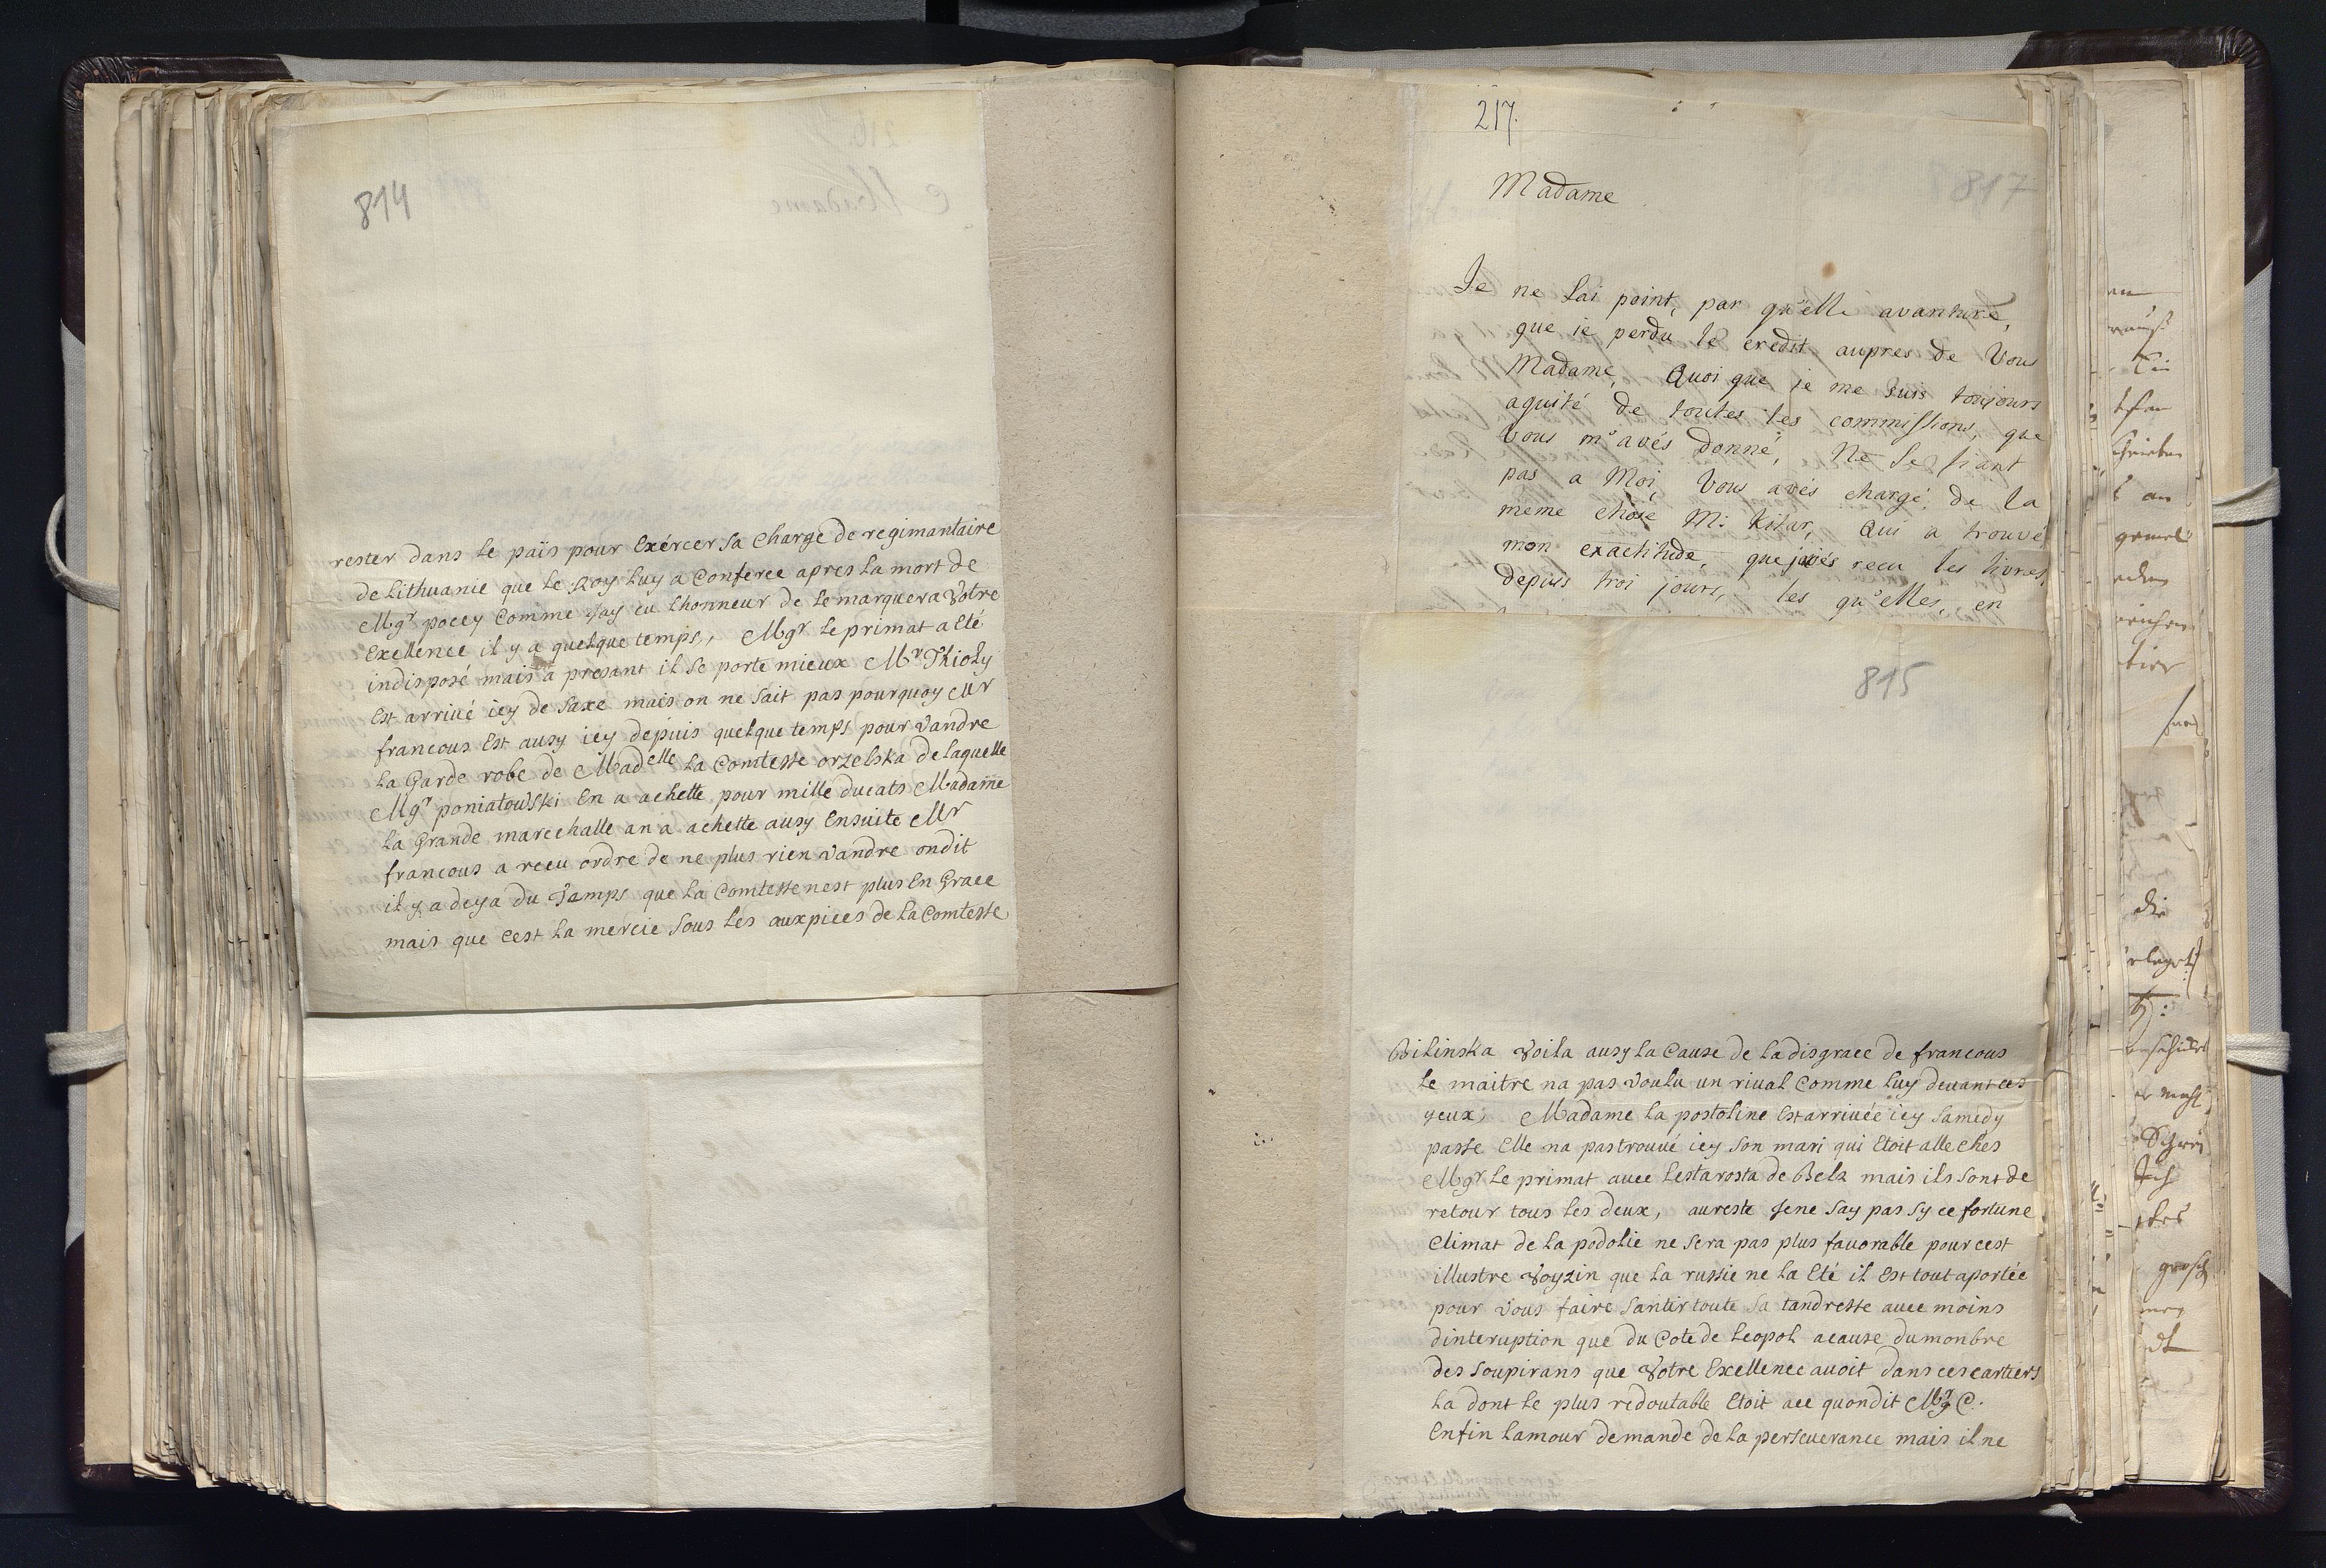 814
rester dans le païs pour Exércer sa Charge de regimantaire
de Lithuanie que le Roy luy a Conferee apres la mort de
Mgr pocey Comme Jay eu Lhonneur de le marquer a Votre
Exellence il y a quelque temps, Mgr Le primat a Eté
indisposé mais a presant il se porte mieux Mr Thioly
Est arriué icy de Saxe mais on ne sait pas pourquoy Mr
francous Est ausy icy dépuis quelque temps pour Vandre
La Garde robe de Madelle La Comtesse orzelska de laquelle
Mgr poniatowski En a achette pour mille ducats Madame
La Grande marechalle an a achette ausy Ensuite Mr
francous a receu ordre de ne plus rien Vandre ondit
il y a deya du Tamps que La Comtesse nest plus En Grace
mais que cest La mercie sous Les auxpices de La Comtesse
217.
817
Madame
Je ne sai point, par qu'elle avanture,
que ie perdu le credit aupres de Vous
Madame, Quoi que je me suis toujours
aquité de toutes les commissions, que
Vous m'avés donné, Ne se fiant
pas a Moi, Vous avés chargé de la
même chose Mr: Kitar, Qui a trouvé
mon exactitude, que javés recu les livres,
depuis troi jours, les qu'elles, en
815
Bilinska Voila ausy La Cause de La disgrace de francous
Le maitre na pas Voulu un riual Comme Luy deuant ces
yeux; Madame La postoline Est arriuée icy Samedy
passe Elle na pas trouué icy Son mari qui Etoit alle Ches
Mgr Le primat auec Lestarosta de Belz mais ils sont de
retour tous Les deux, aureste Jene Say pas Sy ce fortune
Climat de La podolie ne Sera pas plus fauorable pour cest
illustre Voyzin que La russie ne La Eté il Est tout aportée
pour Vous faire Santir toute sa tandresse auec moins
dinteruption que du Cote de Leopol acause dumonbre
des Soupirans que Votre Exellence auoit dans ces cartiers
La dont Le plus redoutable Etoit ace quondit Mgr C.
Enfin Lamour demande de La perseuerance mais il ne